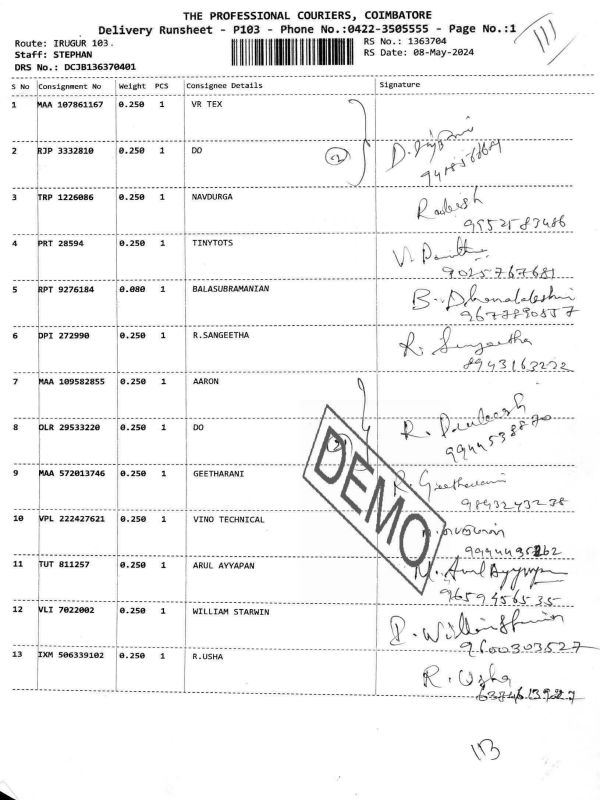 THE PROFESSIONAL COURIERS, COIMBATORE
Delivery Runsheet - P103 - Phone No.:0422-3505555 - Page No.:1
Route: IRUGUR 103. RS No.: 1363704
Staff: STEPHAN RS Date: 08-May-2024
DRS No.: DCJB136370401
S No Consignment No Weight PCS Consignee Details Signature
1 MAA 107861167 0.250 1 VR TEX
2 RJP 3332810 0.250 1 DO (2)
3 TRP 1226086 0.250 1 NAVDURGA
9952583486
4 PRT 28594 0.250 1 TINYTOTS
9025767681
5 RPT 9276184 0.080 1 BALASUBRAMANIAN B.
9677890557
6 DPI 272990 0.250 1 R.SANGEETHA R. Sangeetha
8943163222
7 MAA 109582855 0.250 1 AARON
8 OLR 29533220 0.250 1 DO R.
9944538870
9 MAA 572013746 0.250 1 GEETHARANI R. Geetharani
9893243238
10 VPL 222427621 0.250 1 VINO TECHNICAL
11 TUT 811257 0.250 1 ARUL AYYAPAN M. Arul Ayyapan
9659456535
12 VLI 7022002 0.250 1 WILLIAM STARWIN
9600303527
13 IXM 506339102 0.250 1 R.USHA R. Usha
DEMO